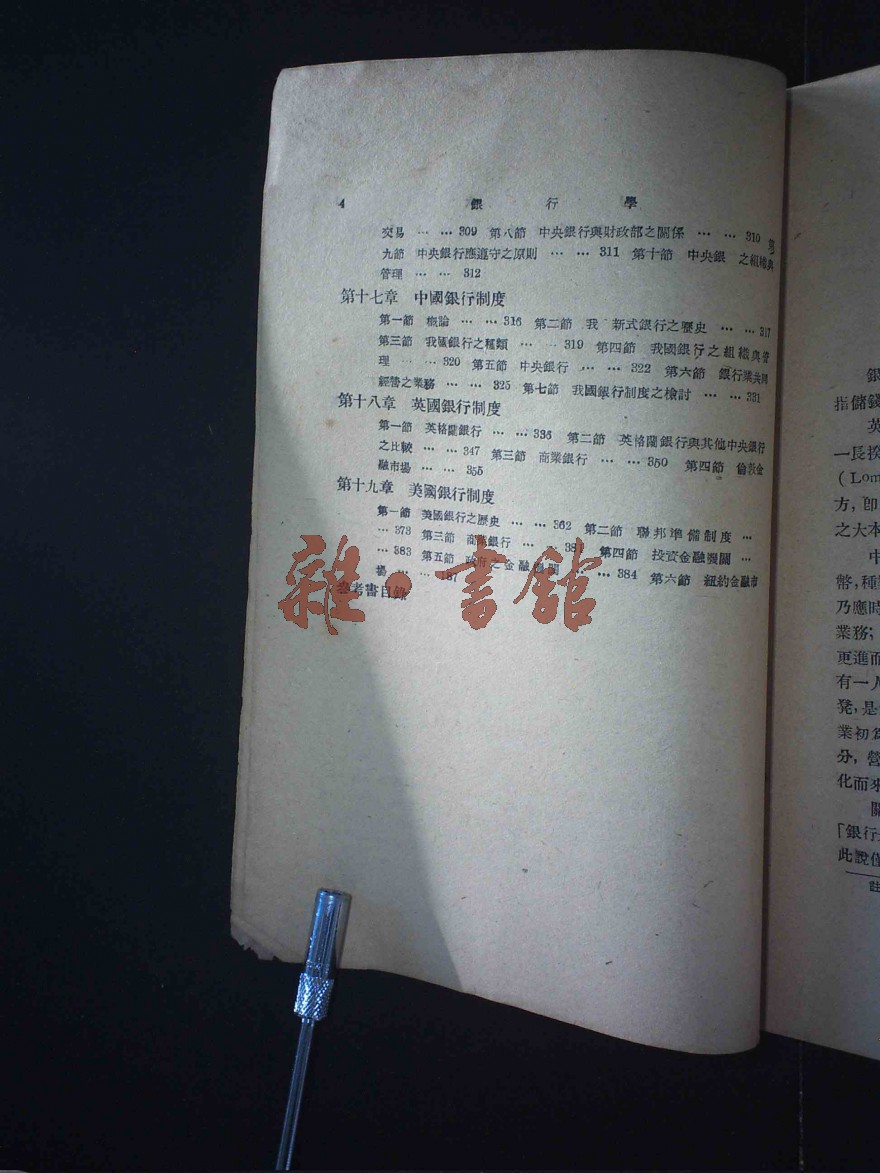 4 銀行學
交易 … … 309 第八節 中央銀行與財政部之關係 … … 310 第
九節 中央銀行應遵守之原則 … … 311 第十節 中央銀 之組織與
管理 … … 312
第十七章 中國銀行制度
第一節 概論 … … 316 第二節 我 新式銀行之歷史 … … 317
第三節 我國銀行之種類 … … 319 第四節 我國銀行之組織與管
理 … … 320 第五節 中央銀行 … … 322 第六節 銀行業共同
經營之業務 … … 325 第七節 我國銀行制度之檢討 … … 331
第十八章 英國銀行制度
第一節 英格蘭銀行 … … 336 第二節 英格蘭銀行與其他中央銀行
之比較 … … 347 第三節 商業銀行 … … 350 第四節 倫敦金
融市場 … … 355
第十九章 美國銀行制度
第一節 美國銀行之歷史 … … 362 第二節 聯邦準備制度 …
… 373 第三節 商業銀行 … … 381 第四節 投資金融機關 …
… 383 第五節 政府之金融機關 … … 384 第六節 紐約金融市
場 … … 387
參考書目錄
雜·書館
銀
指儲錢
英
一長挨
(Lom
方,卽
之大本
中
幣,種
乃應時
業務;
更進而
有一人
凳,是
業初
分,營
化而來
關
「銀行
此說僅
註